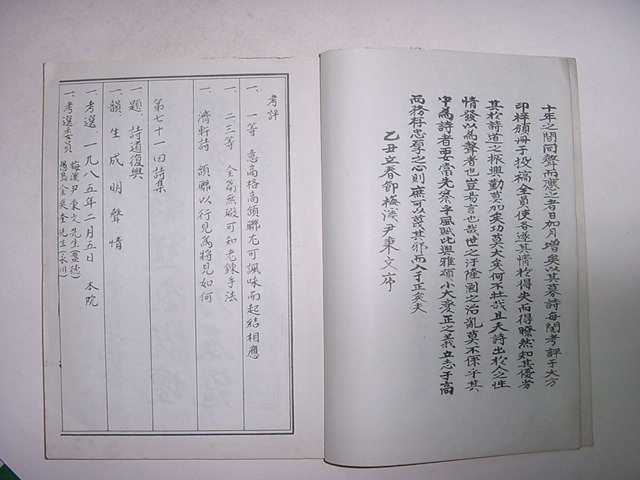 十年之間同聲而應之者日加月增矣以其藁詩每閱考評于大方
印梓頒冊于投稿全員使各遂其情於得失而得瞭然知其優劣
其於詩道之振興勤莫加矣功莫大矣何不杜哉且夫詩出於人之性
情發以爲聲者也豈易言也哉世之汙隆國之治亂莫不係乎其
中爲詩者要當先察乎風賦比興雅頌小大變正之義立志于高
而務存忠厚之心則庶可以篾世邪而入于正矣夫
乙丑立春節梅溪尹東文序
考評
一、一等 意高格高頷聯尤可諷味而起結相應
一、二三等 全篇無瑕可知老鍊手法
一、濟軒詩 頷聯以行見爲將見如何
第七十一回詩集
一、題、詩道復興
一、韻、生 成 明 聲 情
一、考選 一九八五年二月五日 本院
一、考選委員 梅溪尹東文先生(盈德)
愚岛金奭奎先生(永川)